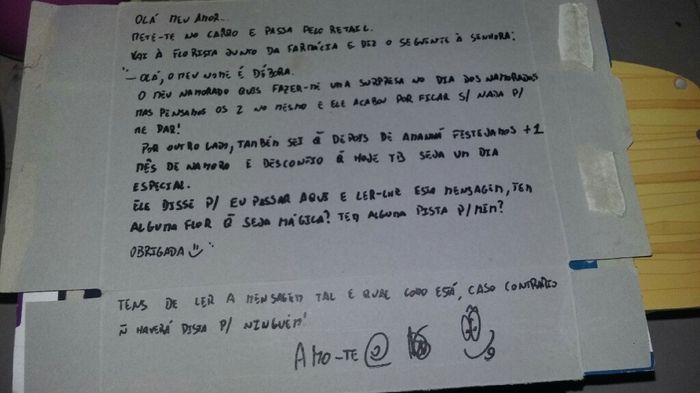 OLÁ MEU AMOR...
METE-TE NO CARRO E PASSA PELO RETAIL.
VAI À FLORISTA JUNTO DA FARMÁCIA E DIZ O SEGUINTE À SENHORA:
"- OLÁ, O MEU NOME É DÉBORA.
O MEU NAMORADO QUIS FAZER-ME UMA SURPRESA NO DIA DOS NAMORADOS
MAS PENSAMOS OS 2 NO MESMO E ELE ACABOU POR FICAR S/ NADA P/
ME DAR!
POR OUTRO LADO, TAMBÉM SEI Q̃ DEPOIS DE AMANHÃ FESTEJAMOS +1
MÊS DE NAMORO E DESCONFIO Q̃ HOJE TB SEJA UM DIA
ESPECIAL.
ELE DISSE P/ EU PASSAR AQUI E LER-LHE ESTA MENSAGEM, TEM
ALGUMA FLOR Q̃ SEJA MÁGICA? TEM ALGUMA PISTA P/ MIM?
OBRIGADA "
TENS DE LER A MENSAGEM TAL E QUAL COMO ESTÁ, CASO CONTRÁRIO
Ñ HAVERÁ PISTA P/ NINGUÉM!
AMO-TE